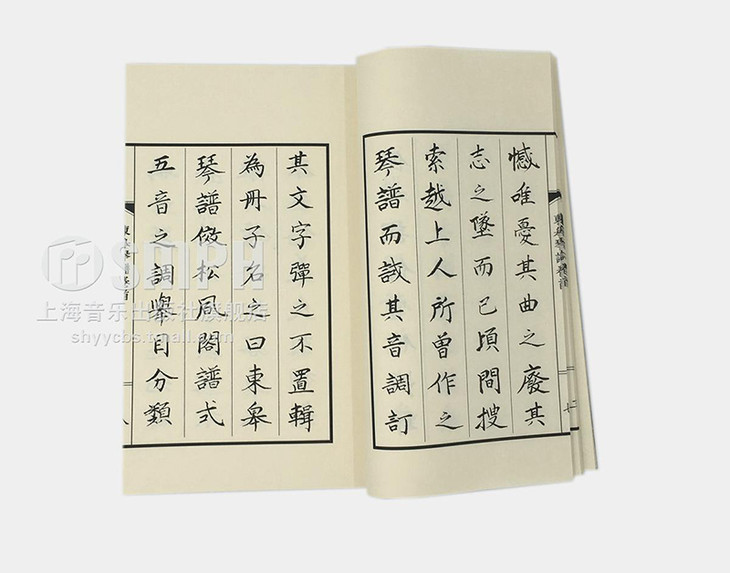 憾唯憂其曲之廢其
志之墜而已頃間搜
索越上人所曾作之
琴譜而試其音調訂
七
其文字彈之不置輯
為冊子名之曰東皋
琴譜倣松風閣譜式
五音之調舉目分類
八
SMPH
上海音乐出版社旗舰店
shyycbs.tmall.com